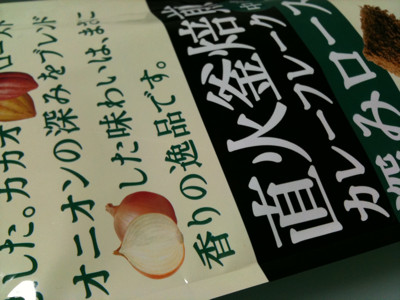 した。カカオ ロースト
オニオンの深みをブレンド
した味わいは、まに
香りの逸品です。
直火釜焙
カレーフレーク
深みロース